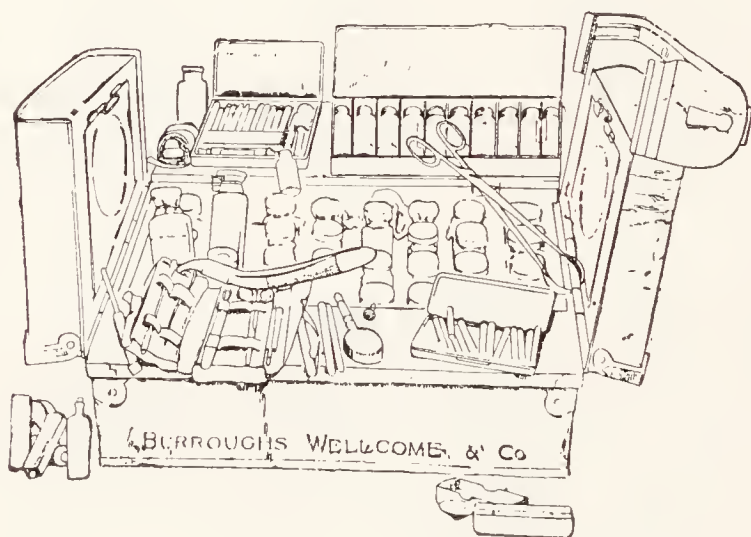 BURROUGHS WELLCOME & Co